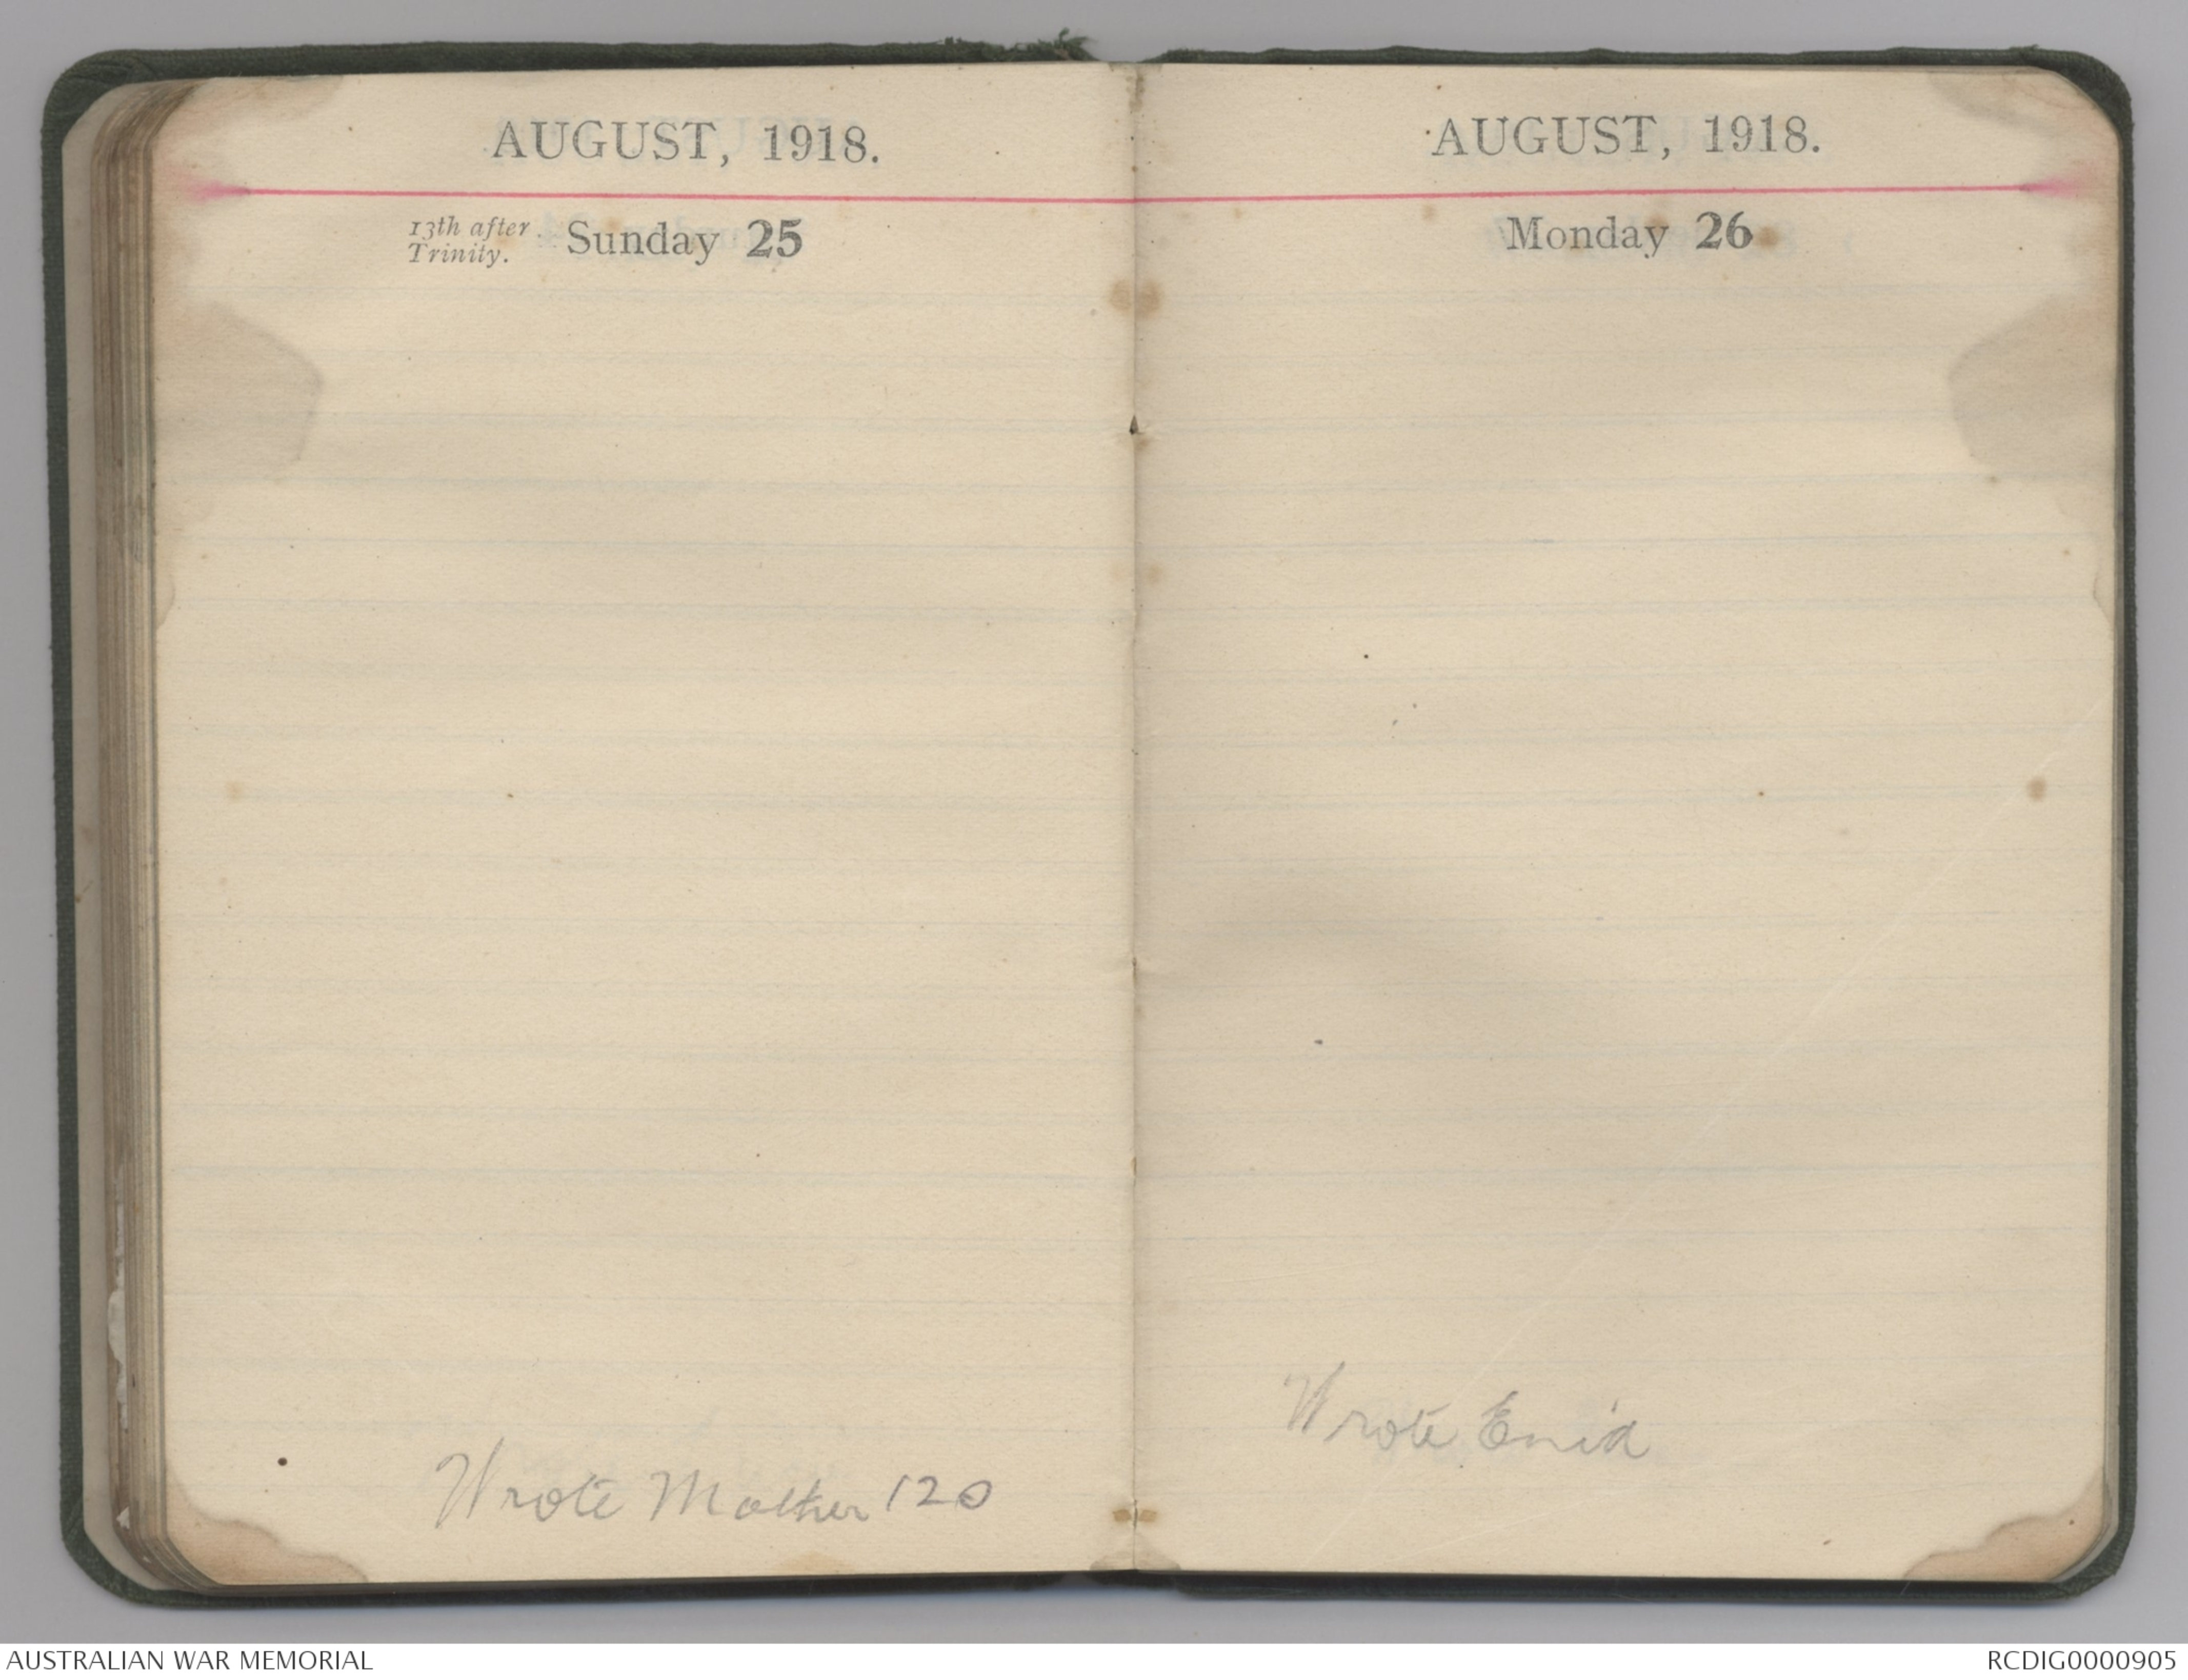 AUGUST, 1918.
13th after
Trinity.
Sunday 25
Wrote Mother 120
AUGUST, 1918.
Monday 26
Wrote Enid
AUSTRALIAN WAR MEMORIAL
RCDIG0000905